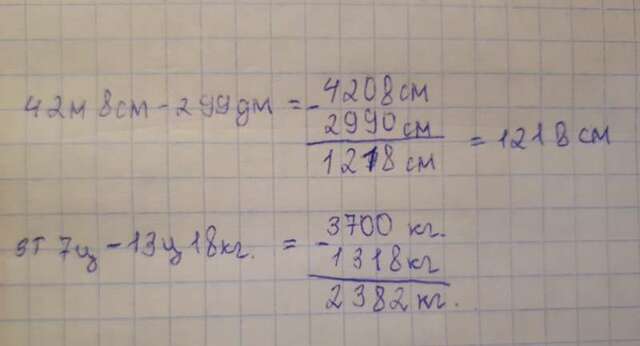 42м 8см - 299дм = - 4208см
2990см
1218см = 1218см
3т 7ц - 13ц 18кг. = - 3700 кг.
1318кг
2382кг.